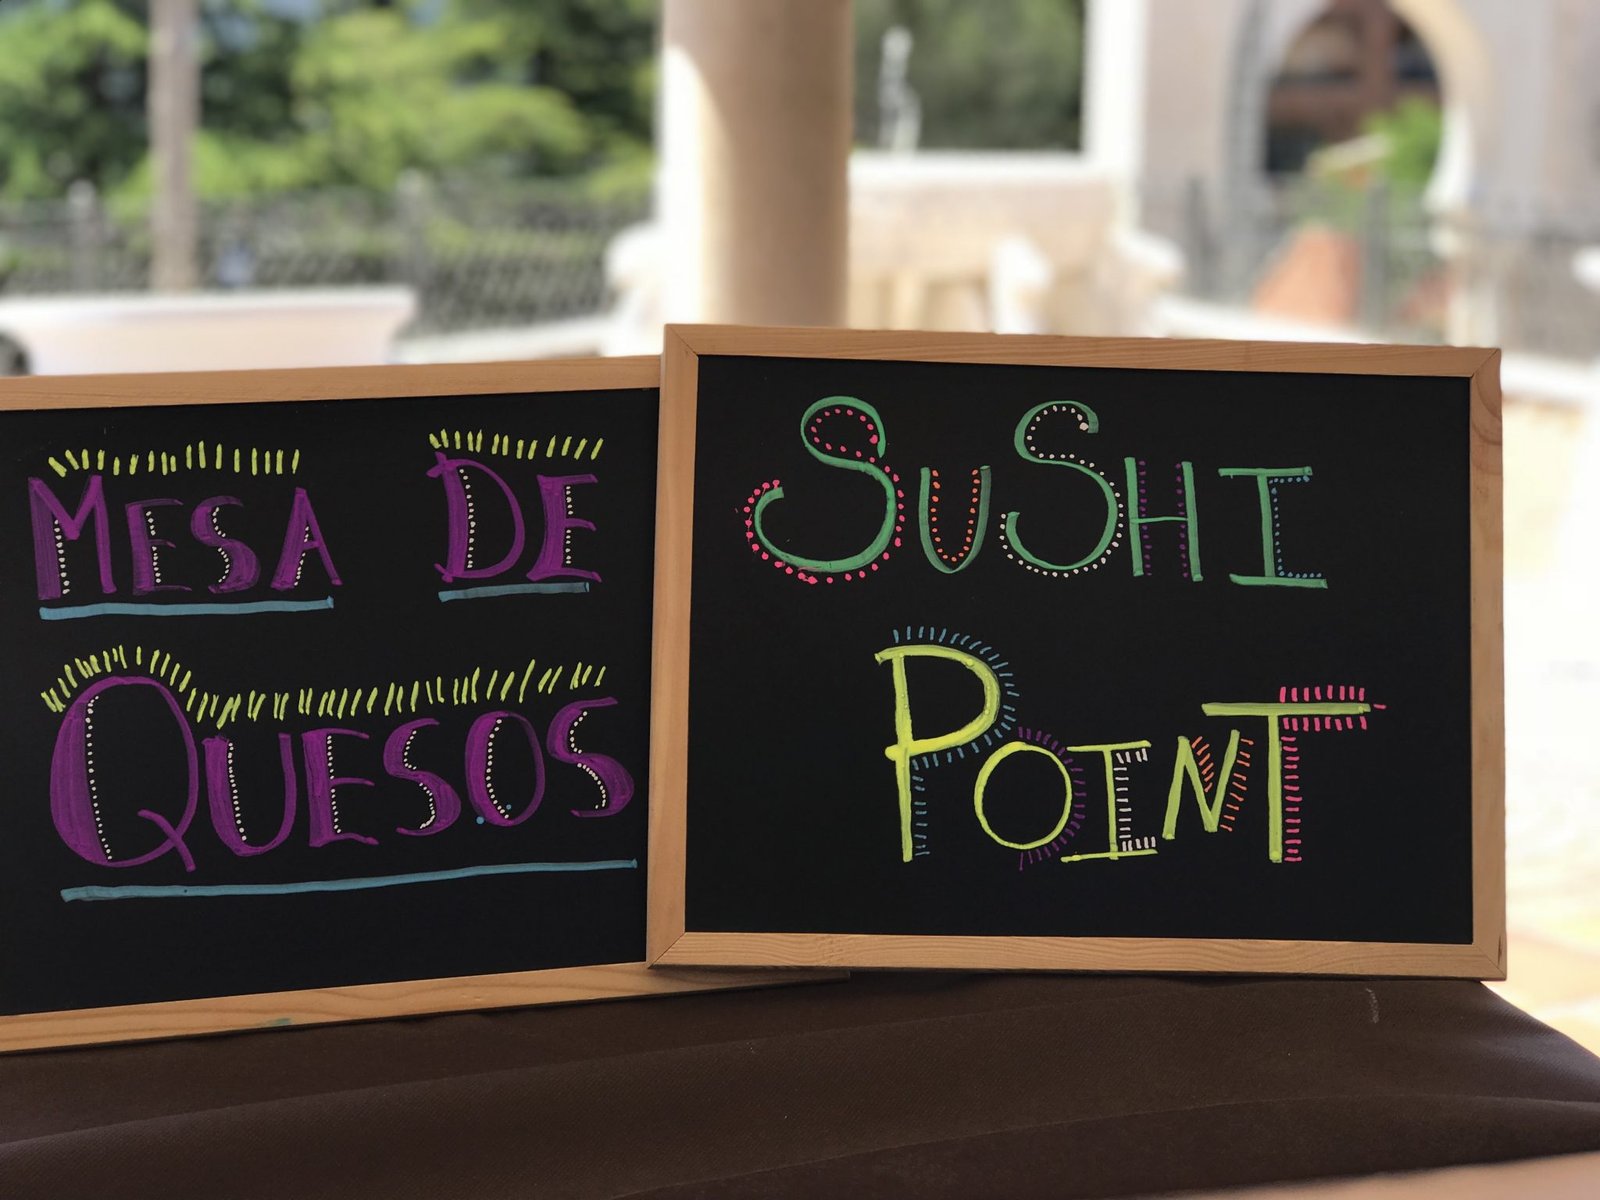 MESA DE
QUESOS
SUSHI
POINT